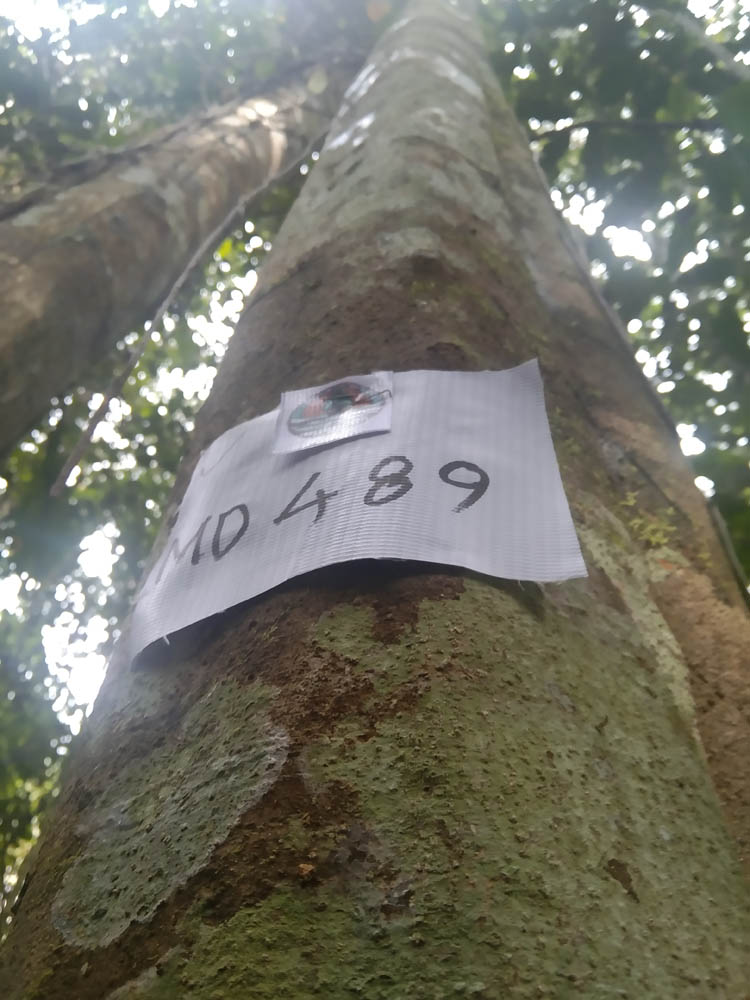 MD 489